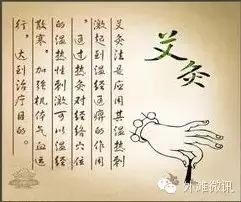 艾灸
艾灸法是应用其温热刺
激起到温经通痹的作用
，通过热灸对经络穴位
的温热性刺激可以温经
散寒，加强机体气血运
行，达到治疗目的。
外滩微讯